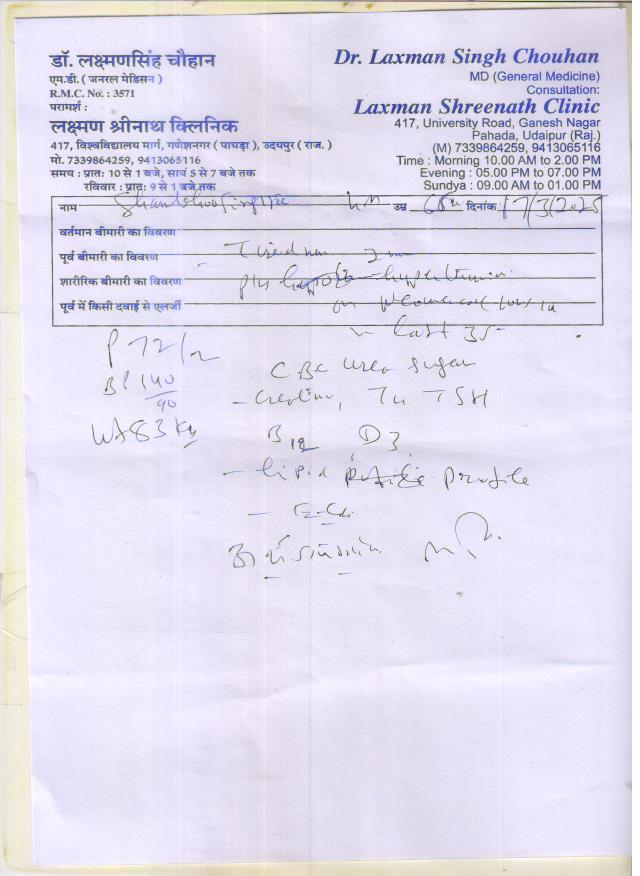 डॉ. लक्ष्मणसिंह चौहान
एम.डी. ( जनरल मेडिसन )
R.M.C. No. : 3571
परामर्श :
लक्ष्मण श्रीनाथ क्लिनिक
417, विश्वविद्यालय मार्ग, गणेशनगर ( पायड़ा ), उदयपुर ( राज. )
मो. 7339864259, 9413065116
समय : प्रातः 10 से 1 बजे, सायं 5 से 7 बजे तक
रविवार : प्रातः 9 से 1 बजे तक
Dr. Laxman Singh Chouhan
MD (General Medicine)
Consultation:
Laxman Shreenath Clinic
417, University Road, Ganesh Nagar
Pahada, Udaipur (Raj.)
(M) 7339864259, 9413065116
Time : Morning 10.00 AM to 2.00 PM
Evening : 05.00 PM to 07.00 PM
Sundya : 09.00 AM to 01.00 PM
नाम उम्र 68 दिनांक 17/3/2025
वर्तमान बीमारी का विवरण
पूर्व बीमारी का विवरण
शारीरिक बीमारी का विवरण
पूर्व में किसी दवाई से एलर्जी
last
P 72/
BP 140/90
Wt 83 Kg
CBC Urea Sugar
TSH
B12 D3
- Lipid Profile